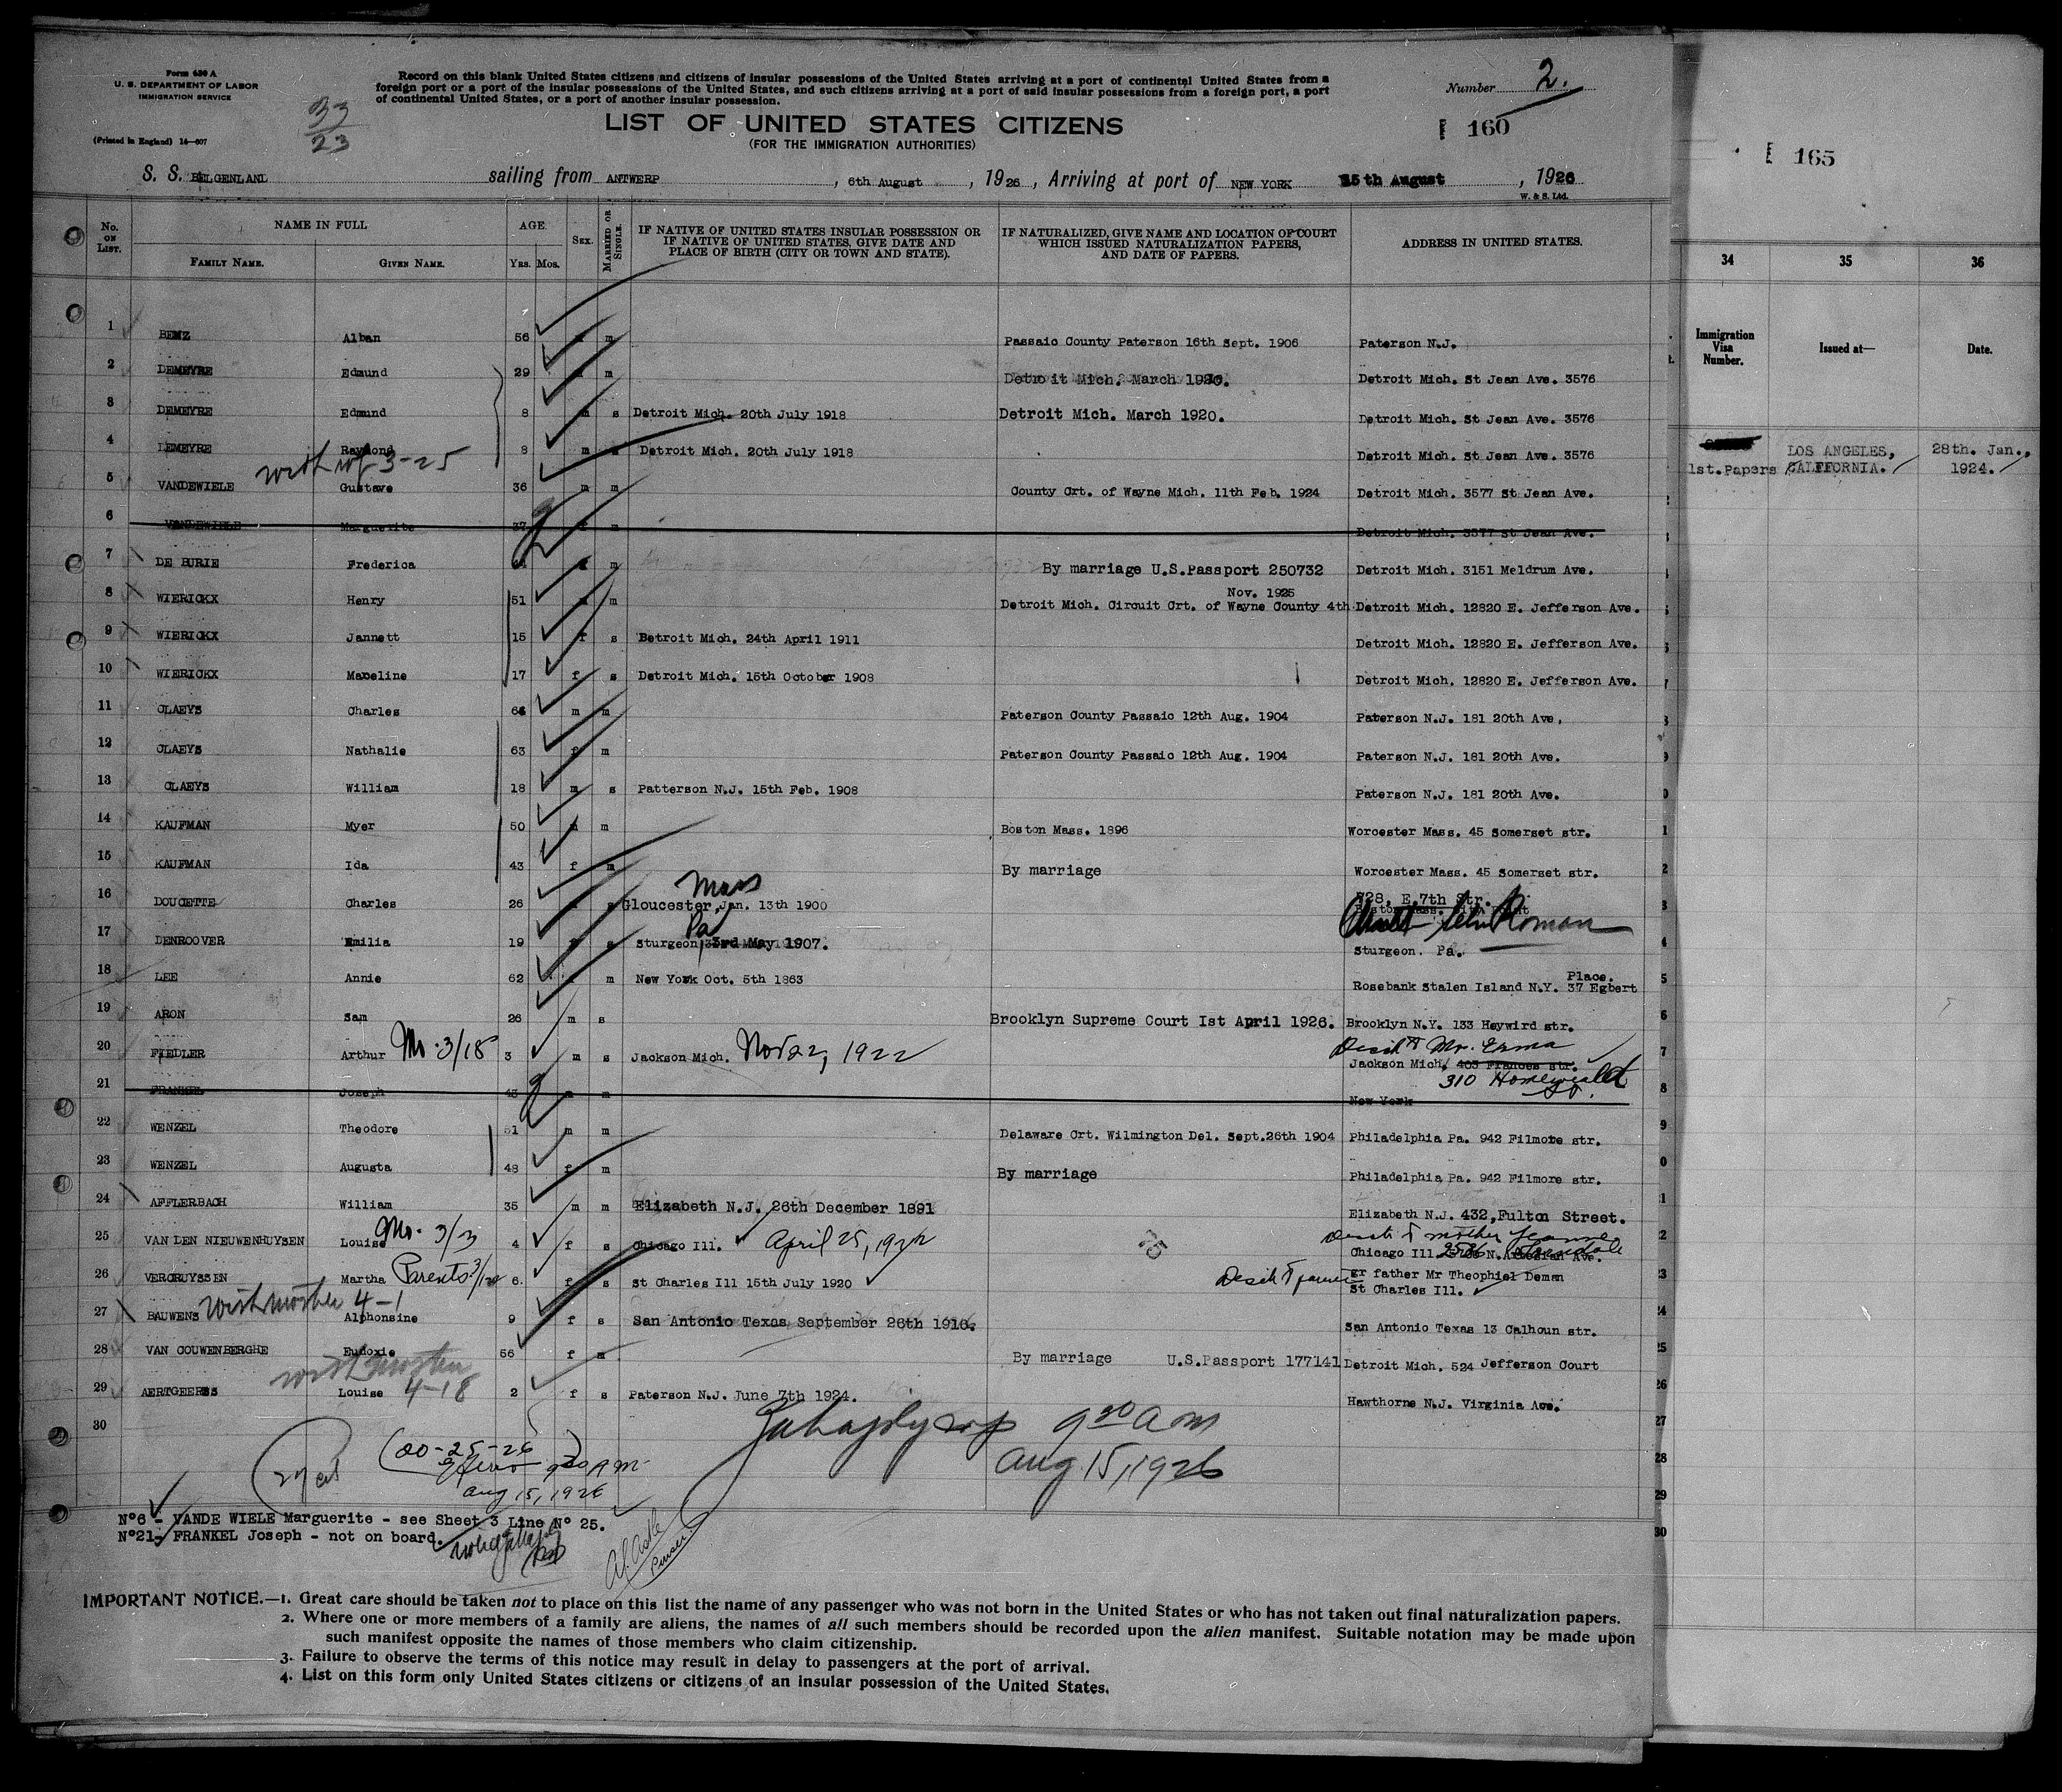 Form 630 A
U. S. DEPARTMENT OF LABOR
IMMIGRATION SERVICE
(Printed in England) 14—607
33
23
Record on this blank United States citizens and citizens of insular possessions of the United States arriving at a port of continental United States from a
foreign port or a port of the insular possessions of the United States, and such citizens arriving at a port of said insular possessions from a foreign port, a port
of continental United States, or a port of another insular possession.
Number 2.
LIST OF UNITED STATES CITIZENS
(FOR THE IMMIGRATION AUTHORITIES)
160
165
S. S. BELGENLAND sailing from ANTWERP, 6th August, 1926, Arriving at port of NEW YORK 15th August, 1926
W. & S. Ltd.
No. ON LIST. NAME IN FULL AGE. SEX. MARRIED OR SINGLE. IF NATIVE OF UNITED STATES INSULAR POSSESSION OR IF NATIVE OF UNITED STATES, GIVE DATE AND PLACE OF BIRTH (CITY OR TOWN AND STATE). IF NATURALIZED, GIVE NAME AND LOCATION OF COURT WHICH ISSUED NATURALIZATION PAPERS, AND DATE OF PAPERS. ADDRESS IN UNITED STATES.
FAMILY NAME. GIVEN NAME. YRS. MOS.
34 35 36
Immigration Visa Number. Issued at— Date.
1st. Papers LOS ANGELES, CALIFORNIA. 28th. Jan., 1924.
1 BENZ Alban 56 m Passaic County Paterson 16th Sept. 1906 Paterson N.J.
2 DEMEYRE Edmund 29 m Detroit Mich. March 1920. Detroit Mich. St Jean Ave. 3576
3 DEMEYRE Edmund 8 m s Detroit Mich. 20th July 1918 Detroit Mich. March 1920. Detroit Mich. St Jean Ave. 3576
4 DEMEYRE Raymond 8 m s Detroit Mich. 20th July 1918 Detroit Mich. St Jean Ave. 3576
with wf 3-25
5 VANDEWIELE Gustave 36 m m County Crt. of Wayne Mich. 11th Feb. 1924 Detroit Mich. 3577 St Jean Ave.
6 VANDEWIELE Marguerite 37 f m Detroit Mich. 3577 St Jean Ave.
7 DE BURIE Frederica m By marriage U.S.Passport 250732 Detroit Mich. 3151 Meldrum Ave.
8 WIERICKX Henry 51 m Detroit Mich. Circuit Crt. of Wayne County 4th Nov. 1925 Detroit Mich. 12820 E. Jefferson Ave.
9 WIERICKX Jannett 15 f s Detroit Mich. 24th April 1911 Detroit Mich. 12820 E. Jefferson Ave.
10 WIERICKX Madeline 17 f s Detroit Mich. 15th October 1908 Detroit Mich. 12820 E. Jefferson Ave.
11 CLAEYS Charles 64 m m Paterson County Passaic 12th Aug. 1904 Paterson N.J. 181 20th Ave.
12 CLAEYS Nathalie 63 f m Paterson County Passaic 12th Aug. 1904 Paterson N.J. 181 20th Ave.
13 CLAEYS William 18 m s Patterson N.J. 15th Feb. 1908 Paterson N.J. 181 20th Ave.
14 KAUFMAN Myer 50 m Boston Mass. 1896 Worcester Mass. 45 Somerset str.
15 KAUFMAN Ida 43 f m By marriage Worcester Mass. 45 Somerset str.
16 DOUCETTE Charles 26 s Gloucester, Mass Jan. 13th 1900 728, E.7th Str.
17 DENROOVER Emilia 19 f s Sturgeon Pa 3rd May 1907. Sturgeon. Pa.
18 LEE Annie 62 m New York Oct. 5th 1863 Rosebank Stalen Island N.Y. 37 Egbert Place.
19 ARON Sam 26 m s Brooklyn Supreme Court Ist April 1926. Brooklyn N.Y. 133 Heywird str.
20 FIEDLER Arthur Mo. 3/18 3 m s Jackson Mich. Nov 22, 1922 Jackson Mich. 403 Frances str.
310
21 FRANKEL Joseph 43 m m New York
22 WENZEL Theodore 51 m m Delaware Crt. Wilmington Del. Sept.26th 1904 Philadelphia Pa. 942 Filmore str.
23 WENZEL Augusta 48 f m By marriage Philadelphia Pa. 942 Filmore str.
24 AFFLERBACH William 35 m m Elizabeth N.J. 26th December 1891 Elizabeth N.J. 432, Fulton Street.
25 VAN DEN NIEUWENHUYSEN Louise Mo. 3/3 4 f s Chicago Ill. April 25, 1922 Chicago Ill.
26 VERCRUYSSEN Martha Parents 6 f s St Charles Ill 15th July 1920 gr father Mr Theophiel Deman St Charles Ill.
with mother 4-1
27 BAUWENS Alphonsine 9 f s San Antonio Texas September 26th 1916. San Antonio Texas 13 Calhoun str.
28 VAN COUWENBERGHE Eudoxie 56 f m By marriage U.S.Passport 177141 Detroit Mich. 524 Jefferson Court
with mother 4-18
29 AERTGEERSS Louise 2 f s Paterson N.J. June 7th 1924. Hawthorne N.J. Virginia Ave.
30
9 30 a m
Aug 15, 1926
27 cit
(20-25-26)
9 30 A M
Aug 15, 1926
N°6 - VANDE WIELE Marguerite - see Sheet 3 Line N° 25.
N°21- FRANKEL Joseph - not on board.
Purser
IMPORTANT NOTICE.—1. Great care should be taken not to place on this list the name of any passenger who was not born in the United States or who has not taken out final naturalization papers.
2. Where one or more members of a family are aliens, the names of all such members should be recorded upon the alien manifest. Suitable notation may be made upon
such manifest opposite the names of those members who claim citizenship.
3. Failure to observe the terms of this notice may result in delay to passengers at the port of arrival.
4. List on this form only United States citizens or citizens of an insular possession of the United States.